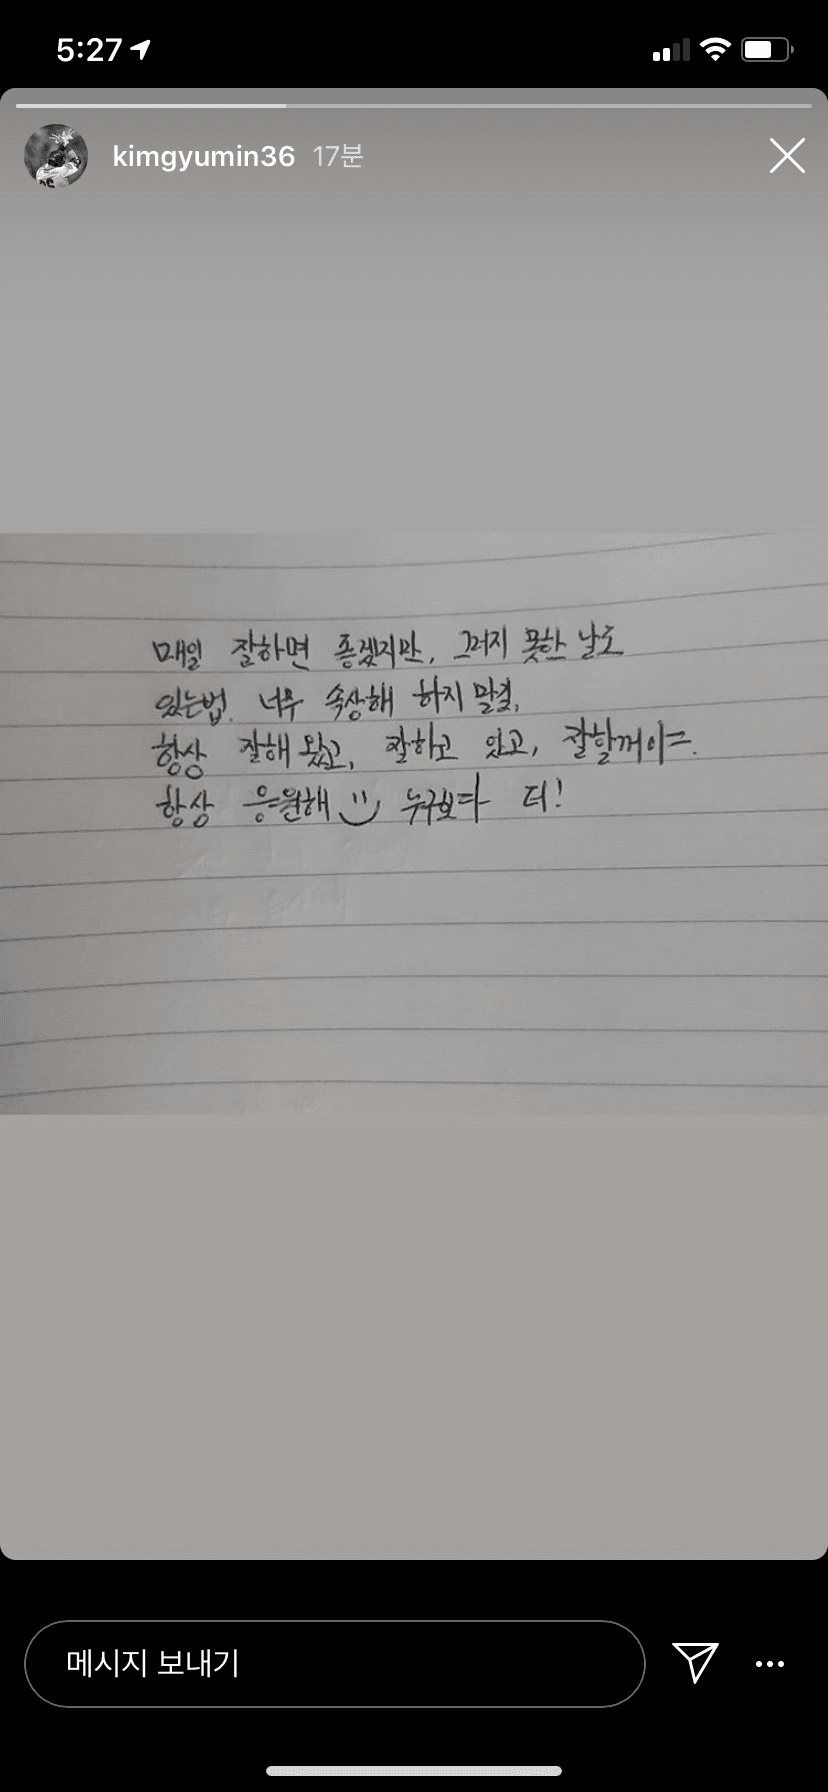 5:27
kimgyumin36 17분
매일 잘하면 좋겠지만, 그러지 못한 날도
있는법. 너무 속상해 하지 말길,
항상 잘해 왔고, 잘하고 있고, 잘할꺼야
항상 응원해 누구보다 더!
메시지 보내기